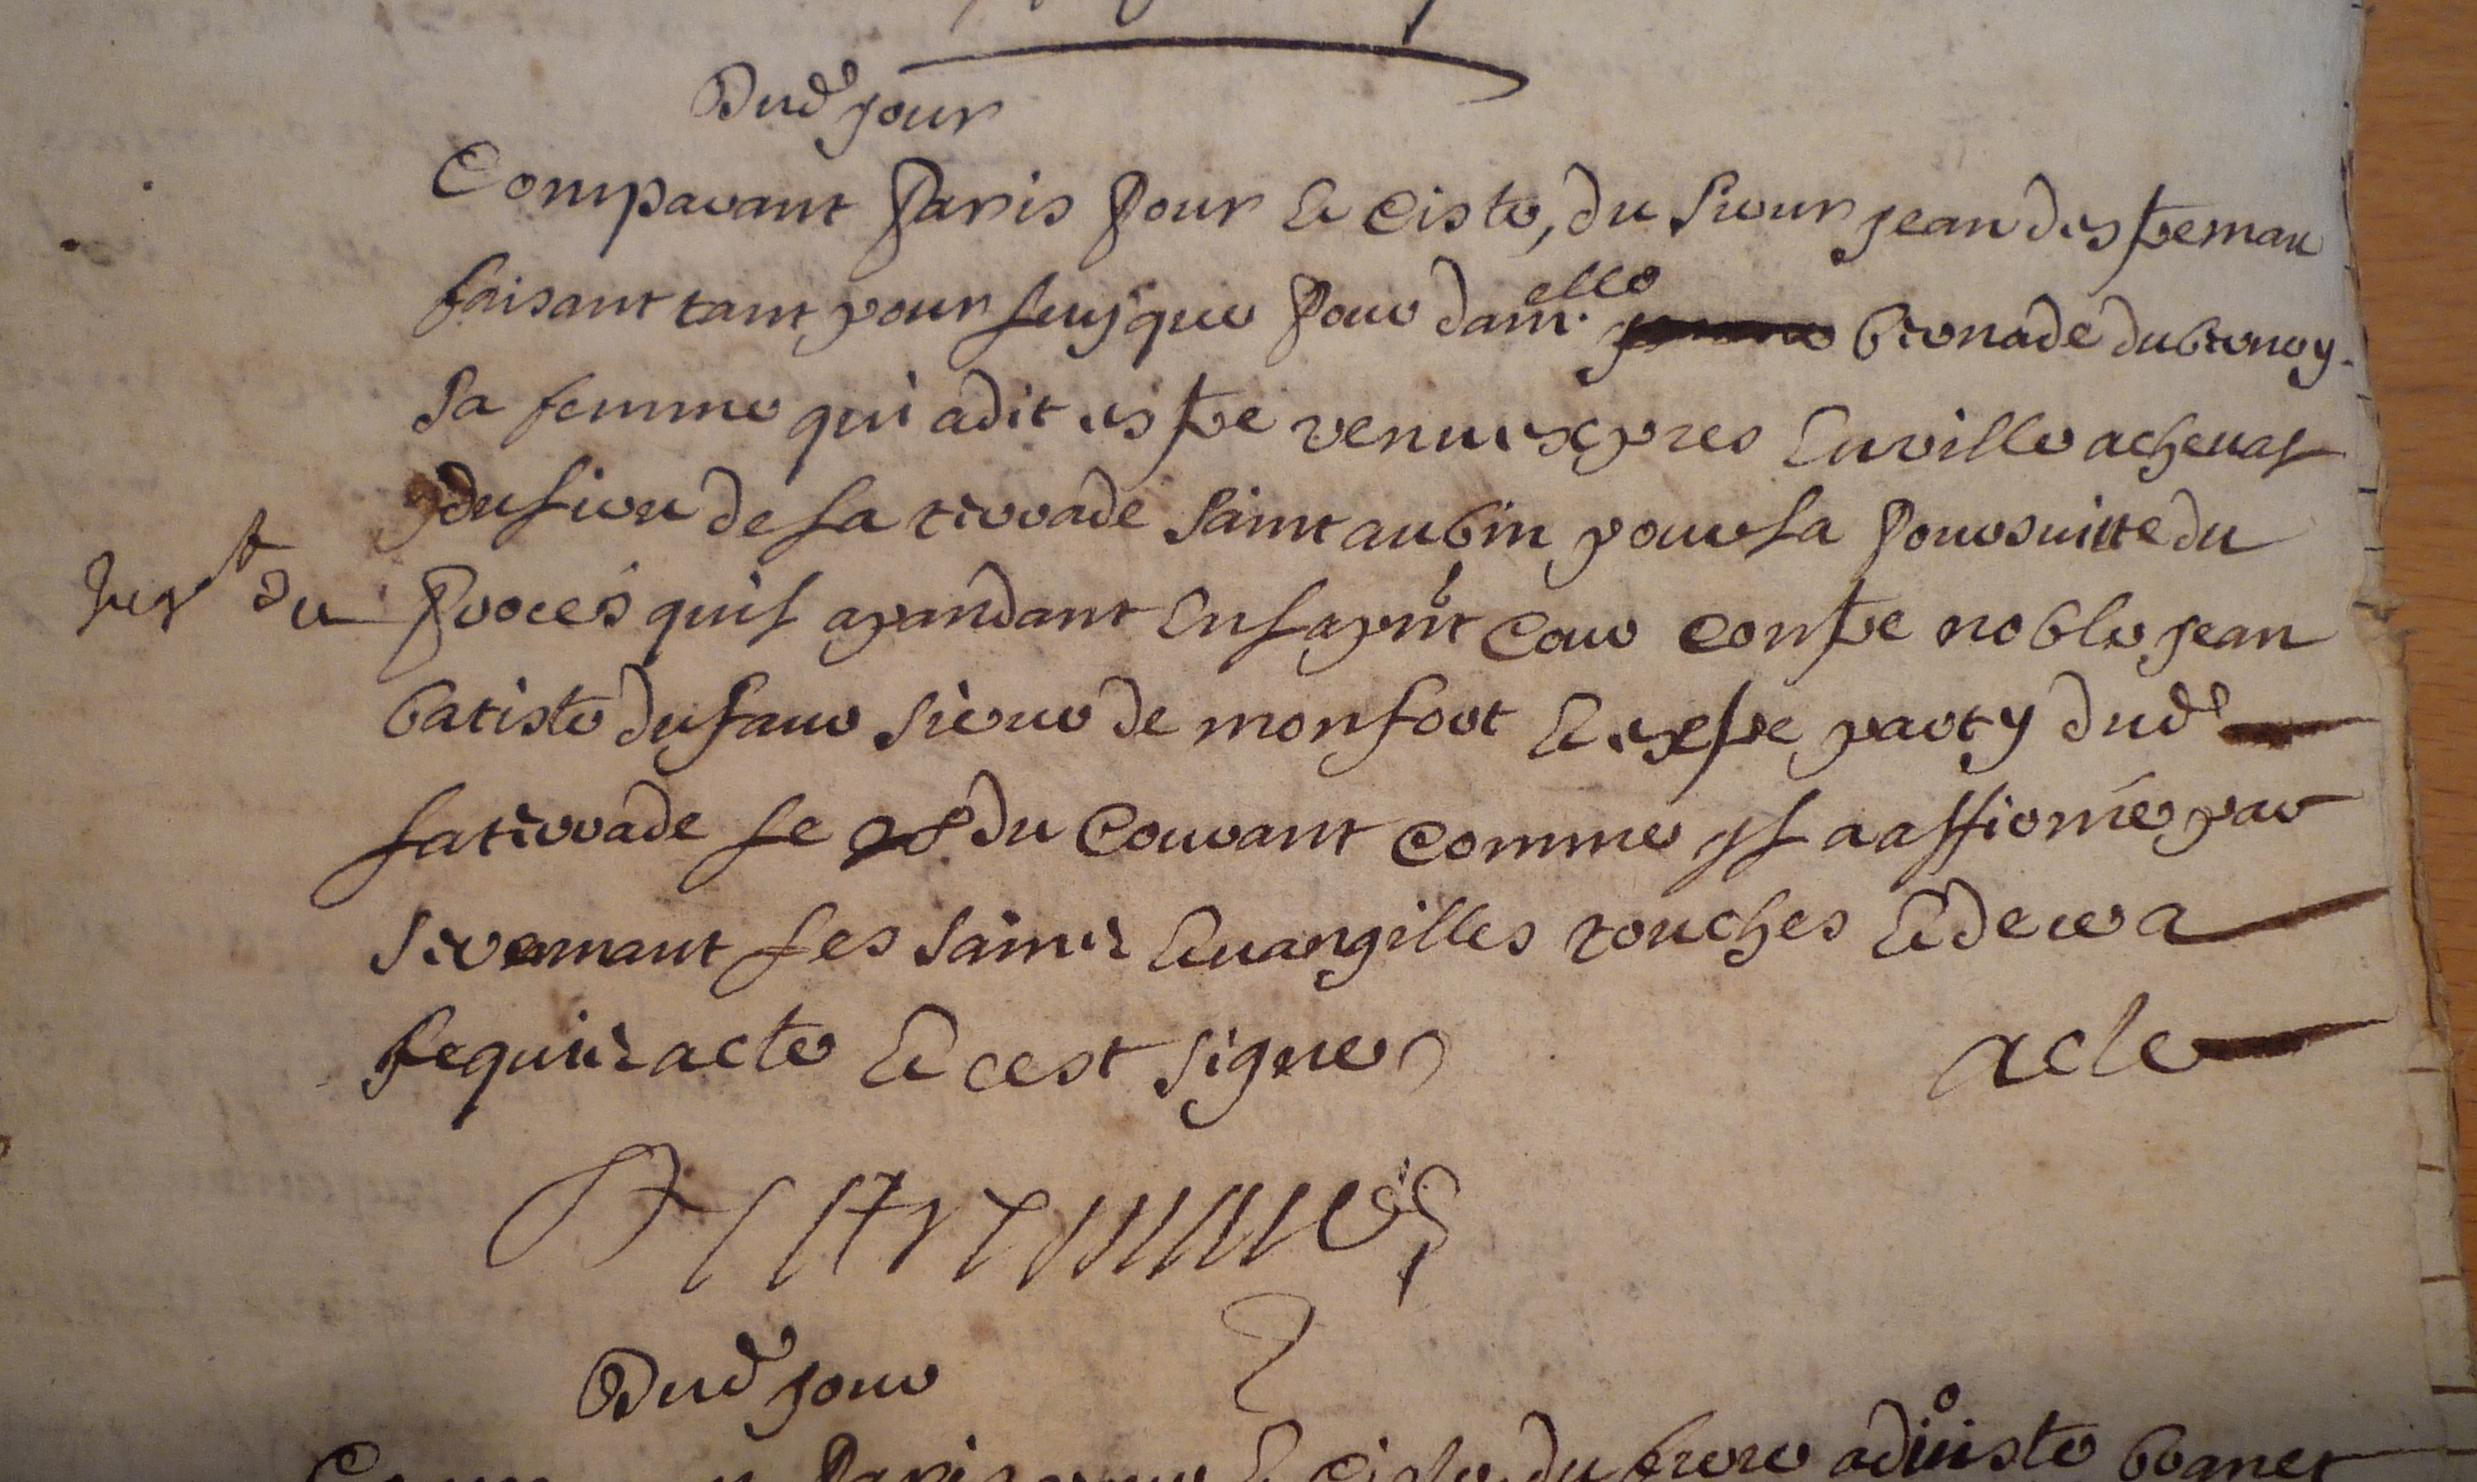 Dud jour
Comparant Paris pour Et Ciste, du sieur jean destremau
faisant tant pour luy que pour dam.elle bernade dubernoy
sa femme qui a dit estre venu expres En ville a cheual
du lieu de la terrade saint aubin pour la poursuitte du
proces quil a pandant En la pnt Cour contre noble jean
batiste dufaur sieur de monfort Et estre party dud
laterrade le 28 du Courant comme jl a affirmé par
seremant les saints Euangilles touches Et de ce a
requis acte Et cest signe acte
Dud jour
Paris pour Et Ciste du frere